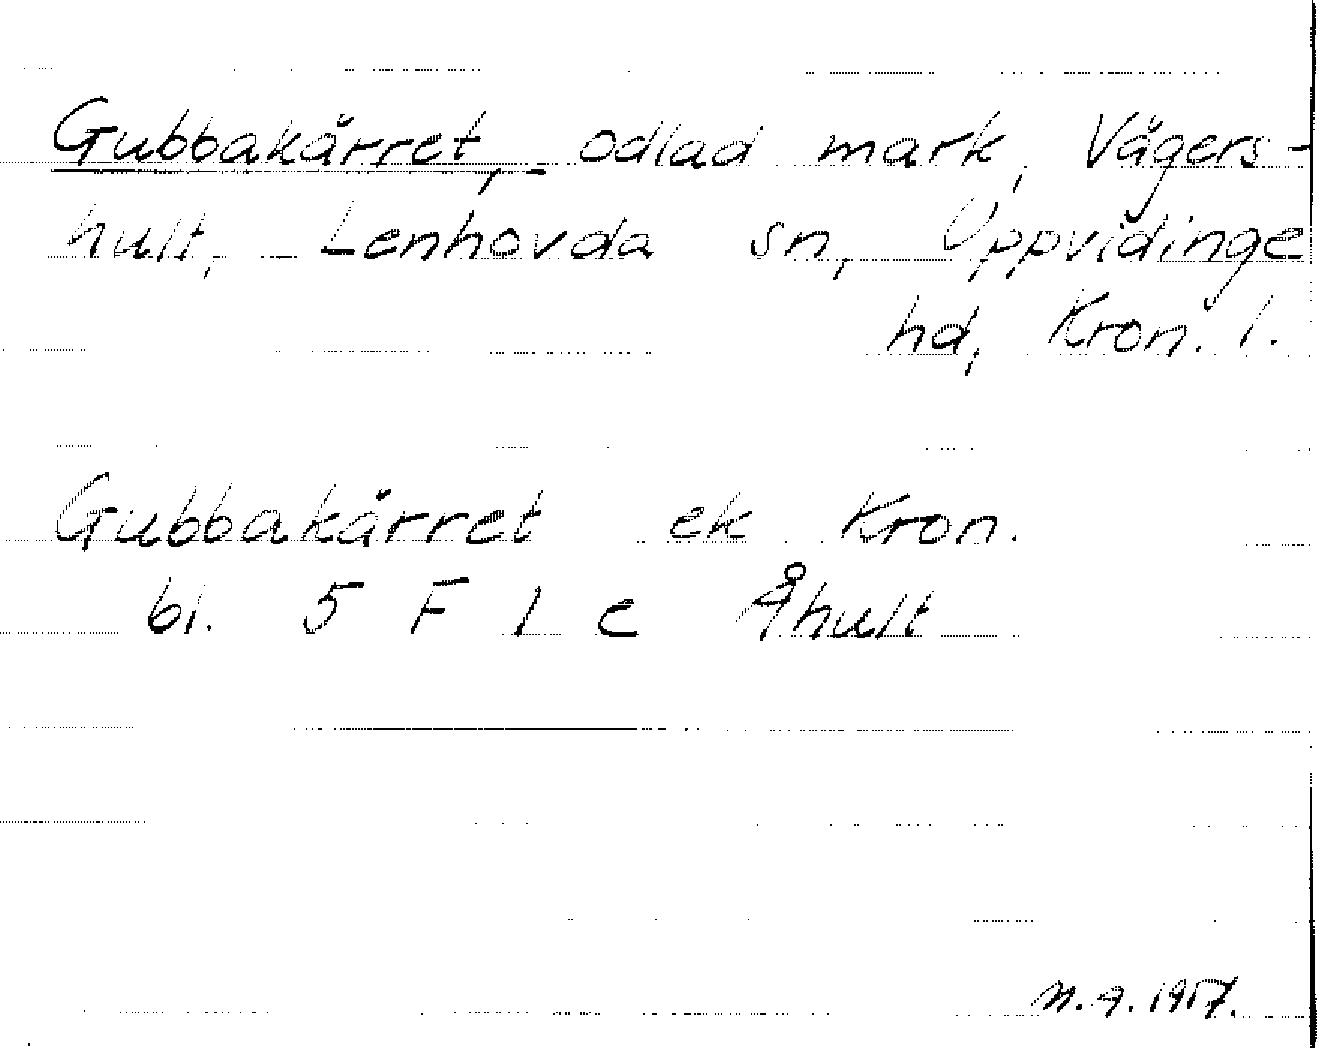 Gubbakärret, odlad mark, Vägers-
hult, Lenhovda sn, Uppvidinge
hd, Kron. l.
Gubbakärret ek Kron.
bl. 5 F 1 c Åhult
1957.